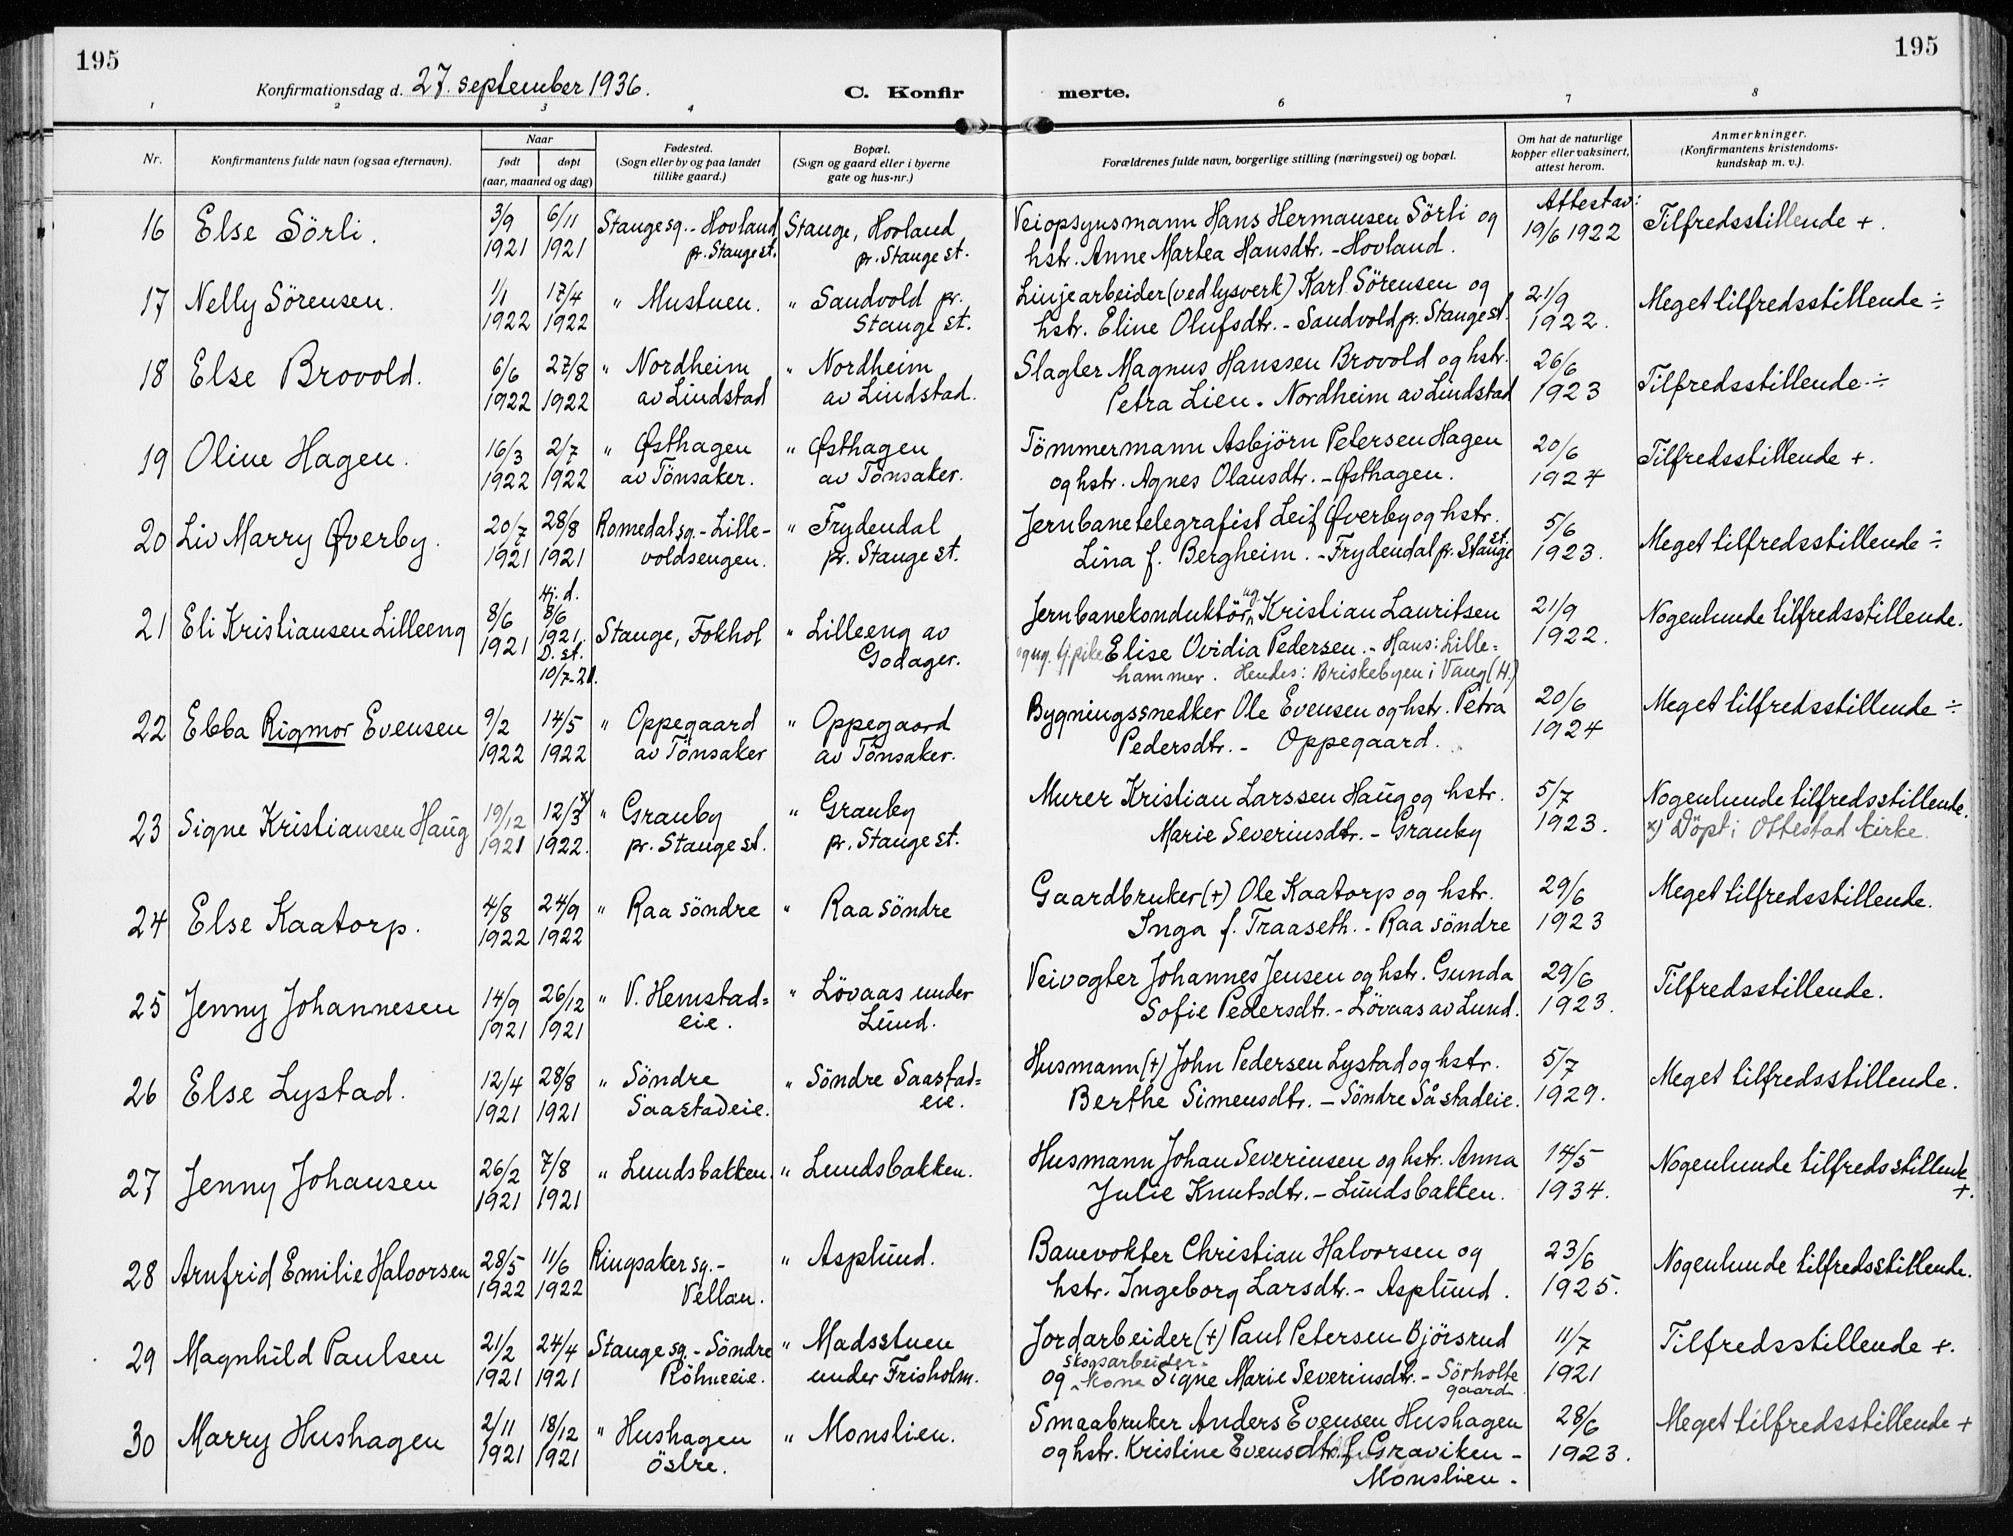 195
195
Konfirmationsdag d. 27. september 1936.
C. Konfir
merte.
1 2 3 4 6 7 8
Nr.
Konfirmantens fulde navn (ogsaa efternavn).
Naar
født
døpt
(aar, maaned og dag)
Fødested.
(Sogn eller by og paa landet
tillike gaard.)
Bopæl.
(Sogn og gaard eller i byerne
gate og hus-nr.)
Forældrenes fulde navn, borgerlige stilling (næringsvei) og bopæl.
Om hat de naturlige
kopper eller vaksinert,
attest herom.
Anmerkninger.
(Konfirmantens kristendoms-
kundskap m. v.).
Attest av:
16 Else Sörli. 3/9 6/11 Stange sg. - Hovland Stange, Hovland Veiopsynsmann Hans Hermansen Sörli og 19/6 1922 Tilfredsstillende +.
1921 1921 pr. Stange st. pr. Stange st. hstr. Anne Martea Hansdtr. - Hovland.
17 Nelly Sörensen. 1/1 17/4 " Mustuen. " Sandvold pr. Linjearbeider (ved lysverk) Karl Sörensen og 21/9 Meget tilfredsstillende ÷
1922 1922 Stange st. hstr. Eline Olufsdtr. - Sandvold pr. Stange st. 1922.
18 Else Brovold. 6/6 27/8 " Nordheim " Nordheim Slagter Magnus Hanssen Brovold og hstr. 26/6 Tilfredsstillende ÷
1922 1922 av Lindstad av Lindstad. Petra Lien. Nordheim av Lindstad 1923
19 Oline Hagen. 16/3 2/7 " Østhagen " Østhagen Tömmermann Asbjörn Petersen Hagen 20/6 Tilfredsstillende +.
1922 1922 av Tönsaker. av Tönsaker. og hstr. Agnes Olausdtr. - Østhagen. 1924
20 Liv Marry Øverby. 20/7 28/8 Romedal sg. - Lille- " Frydendal Jernbanetelegrafist Leif Øverby og hstr. 5/6 Meget tilfredsstillende ÷
1921 1921 voldsengen. pr. Stange st. Lina f. Bergheim. - Frydendal pr. Stange st. 1923.
Hj. d.
21 Eli Kristiansen Lilleeng 8/6 8/6 Stange, Fokhol " Lilleeng av Jernbanekonduktör ug. Kristian Lauritsen 21/9 Nogenlunde tilfredsstillende.
1921 1921. Godager. og ug. tj.pike Elise Ovidia Pedersen. - Hans: Lille= 1922.
D. st.
10/7-21. hammer. Hendes: Briskebyen i Vang (H.)
22 Ebba Rigmor Evensen 9/2 14/5 " Oppegaard " Oppegaard Bygningssnedker Ole Evensen og hstr. Petra 20/6 Meget tilfredsstillende ÷
1922 1922 av Tönsaker av Tönsaker. Pedersdtr. - Oppegaard. 1924
23 Signe Kristiansen Haug 19/12 12/3 x) " Granby " Granby Murer Kristian Larssen Haug og hstr. 5/7 Nogenlunde tilfredsstillende.
1921 1922. pr. Stange st. pr. Stange st. Marie Severinsdtr. - Granby 1923. x) Döpt i Ottestad kirke.
24 Else Kaatorp. 4/8 24/9 " Raa söndre " Raa söndre Gaardbruker (+) Ole Kaatorp og hstr. 29/6 Meget tilfredsstillende.
1922 1922 Inga f. Traaseth. - Raa söndre 1923
25 Jenny Johannesen 14/9 26/12 " V. Hemstad= " Lövaas under Veivogter Johannes Jensen og hstr. Gunda 29/6 Tilfredsstillende.
1921 1921 eie. Lund. Sofie Pedersdtr. - Lövaas av Lund. 1923.
26 Else Lystad. 12/4 28/8 " Söndre " Söndre Saastad= Husmann (+) John Pedersen Lystad og hstr. 5/7 Meget tilfredsstillende.
1921 1921 Saastadeie. eie. Berthe Simensdtr. - Söndre Såstadeie. 1929.
27 Jenny Johansen 26/2 7/8 " Lundsbakken. " Lundsbakken. Husmann Johan Severinsen og hstr. Anna 14/5 Nogenlunde tilfredsstillende
1921 1921 Julie Knutsdtr. - Lundsbakken. 1934. +.
28 Arnfrid Emilie Halvorsen 28/5 11/6 Ringsaker sg. - " Asplund. Banevokter Christian Halvorsen og 23/6 Nogenlunde tilfredsstillende.
1922 1922 Vellan. hstr. Ingeborg Larsdtr. - Asplund. 1925.
29 Magnhild Paulsen 21/2 24/4 Stange sg. - Söndre " Madsstuen Jordarbeider (+) Paul Petersen Björsrud 11/7 Tilfredsstillende +.
1921 1921 Röhneeie. under Frisholm. og skogsarbeider- kone Signe Marie Severinsdtr. - Sörholte 1921
gaard.
30 Marry Hushagen 2/11 18/12 " Hushagen " Monslien. Smaabruker Anders Evensen Hushagen 28/6 Meget tilfredsstillende +
1921 1921 östre. og hstr. Kristine Evensdtr. f. Graviken - 1923.
Monslien.